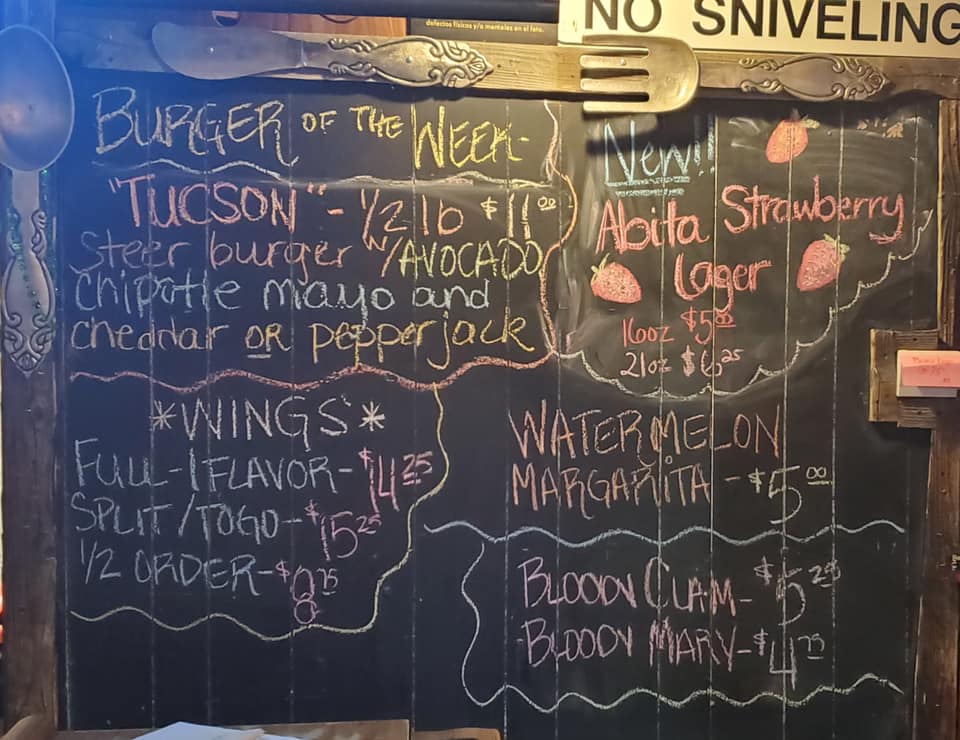 defectos físicos y/o mentales en el feto.
NO SNIVELING
BURGER OF THE WEEK-
"TUCSON" - 1/2 lb $11.00
steer burger w/AVOCADO
chipotle mayo and
cheddar OR pepperjack
*WINGS*
FULL-1 FLAVOR-$14.25
SPLIT/TOGO-$15.25
1/2 ORDER-$8.75
New!!
Abita Strawberry
Lager
16oz $5.00
21oz $6.25
WATERMELON
MARGARITA -$5.00
BLOODY CLAM-$5.25
BLOODY MARY-$4.75